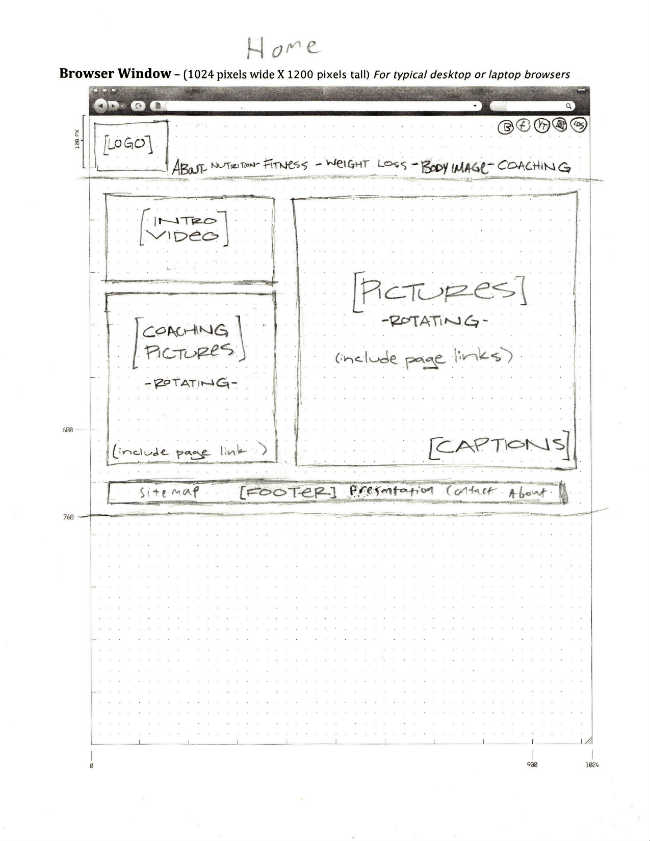 Home
Browser Window – (1024 pixels wide X 1200 pixels tall) For typical desktop or laptop browsers
120 PX
[LOGO]
ABOUT - NUTRITION - FITNESS - WEIGHT LOSS - BODY IMAGE - COACHING
[INTRO
VIDEO]
[PICTURES]
- ROTATING -
(include page links)
[COACHING
PICTURES]
- ROTATING -
(include page link )
[CAPTIONS]
600
Sitemap [FOOTER] Presentation Contact About
760
0 900 1024